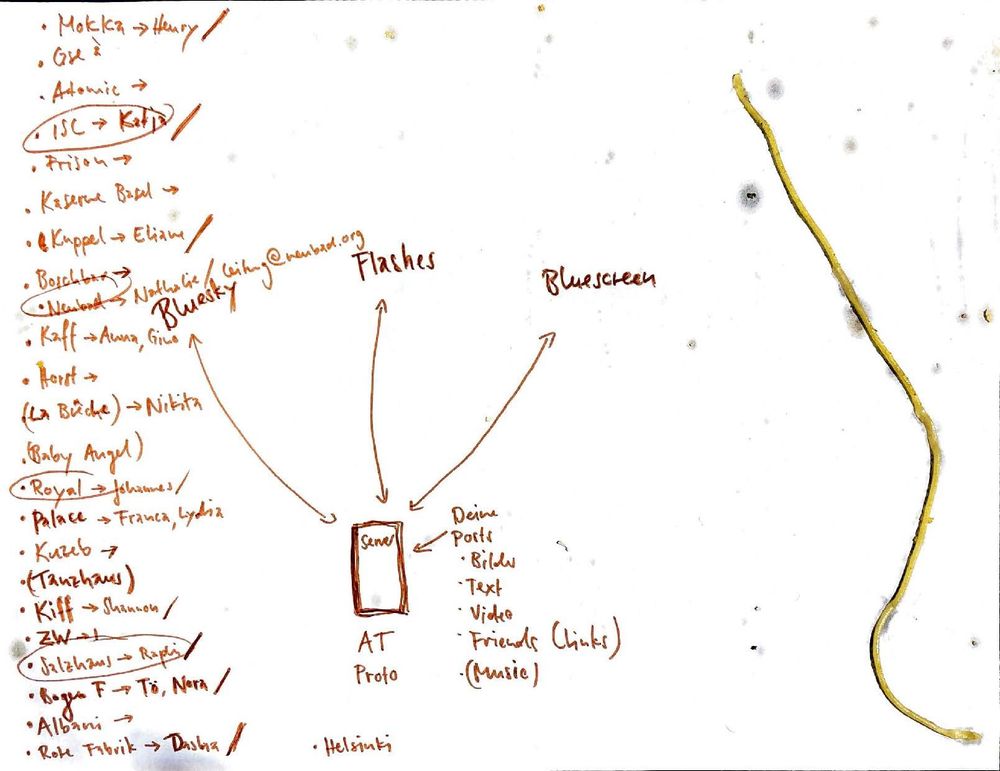 · Mokka → Henry /
· Gsé
· Atomic →
· ISC → Katja /
· Prison →
· Kaserne Basel →
· Kuppel → Eliane /
Boschbar →
· Neubad → Nathalie / leitung@neubad.org
· Kaff → Anna, Gino
· Horst →
(La Bûche) → Nikita
(Baby Angel)
· Royal → Johannes /
· Palace → Franca, Lydia
· Kuzeb →
· (Tanzhaus)
· Kiff → Shannon /
· ZW →
· Salzhaus → Raphi /
· Bogen F → Tö, Nora /
· Albani →
· Rote Fabrik → Dasha /
· Helsinki
Bluesky
Flashes
Bluescreen
Server
AT
Proto
Deine
Posts
· Bilder
· Text
· Video
· Friends (Links)
· (Music)